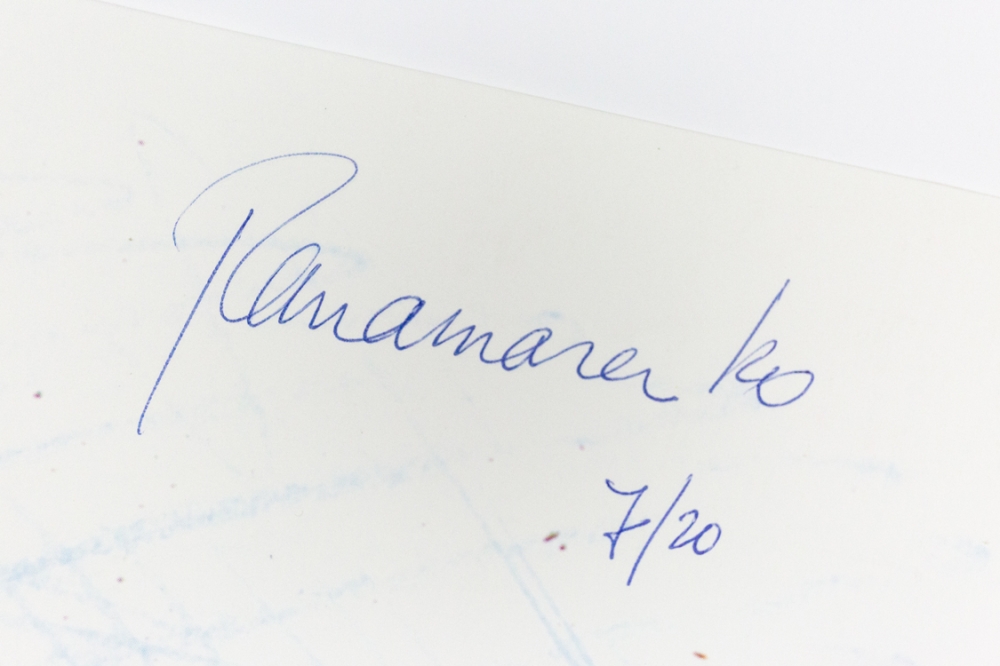 Panamarenko
7/20